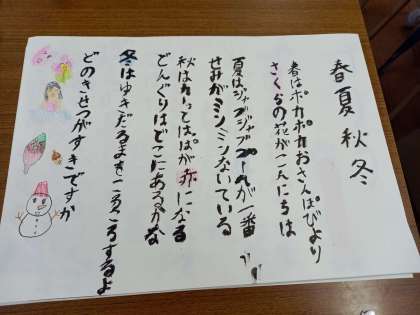 春夏秋冬
春はポカポカおさんぽびより
さくらの花がこんにちは
夏はジャブジャブプールが一番
せみがミンミンないている
秋ははっぱが赤になる
どんぐりはどこにあるかな
冬はゆきだるまを
するよ
どのきせつがすきですか